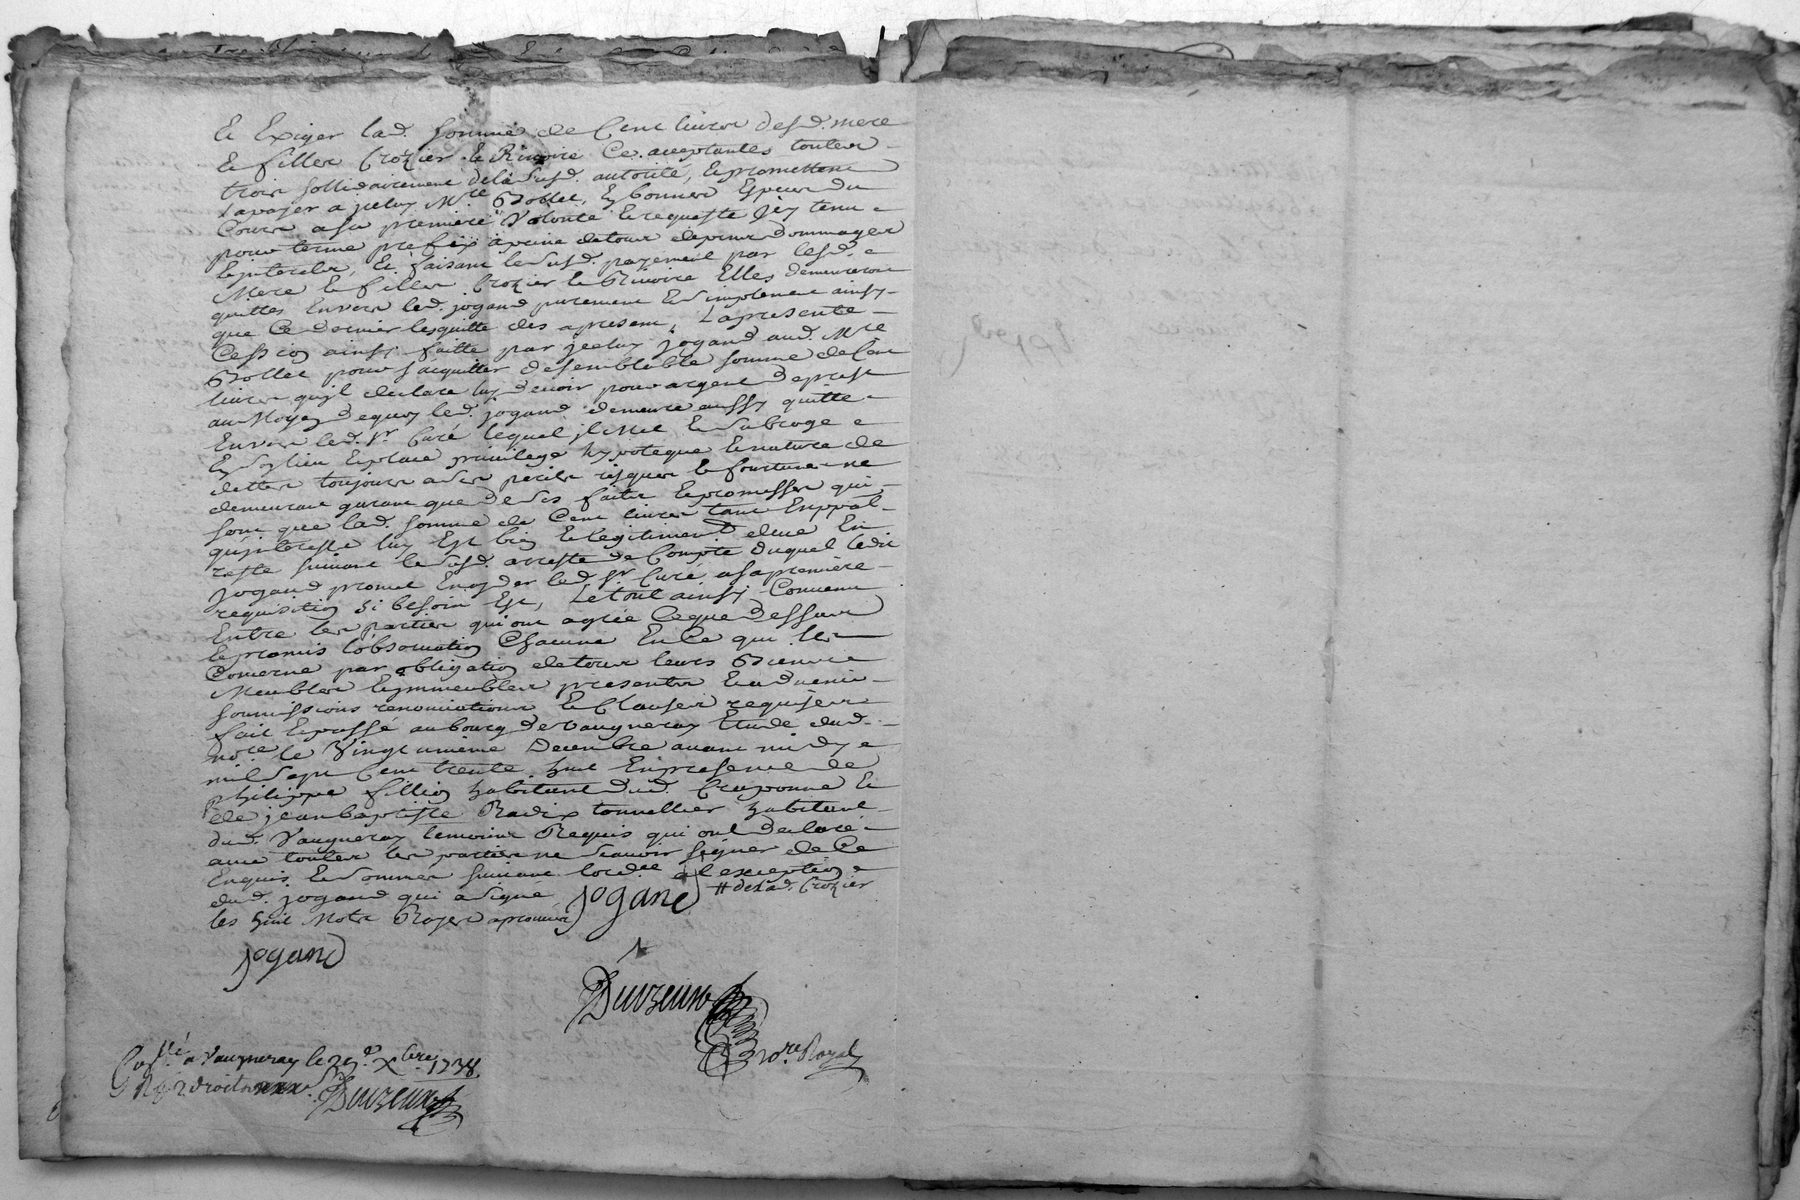 Et Exiger lad. somme de Cent livres desd. mere
Et filles Crozier et Rivoire Ce. acceptantes toutes
trois sollidairement de la susd. autorité, et promettent
la payer a jceluy Mre. Bollet, En bonnes Especes du
Cours a sa premiere Volonté et requeste jcy tenu
pour terme prefix a peine de tous depens dommages
et jnterets, Et faisant le susd. payement par lesd.
Mere et filles Crozier et Rivoire Elles demeureront
quittes Envers led. jogand purement et simplement ainsy
que Ce dernier les quitte des apresent, La presente
Cession ainsy faitte par jceluy jogand aud. Mre
Bollet pour s'acquitter de semblable somme de Cent
livres quil declare luy devoir pour argent de prest
au Moyen de quoy led. jogand demeure aussy quitte
Envers led. Sr. Curé lequel jl Met Et Subroge
En son lieu Et place privilege hypoteque Et nature de
dettes toujours a ses perils risques Et fortunes ne
demeurant garant que de ses faits Et promesses qui
sont que lad. somme de Cent livres tant En ppal
qu'jnterests luy Est bien Et legitiment deue En
reste suivant le susd. arreste de Compte duquel ledit
jogand promet En ayder led. Sr. Curé a sa premiere
requisition si besoin Est, Le tout ainsy Convenu
Entre les parties qui ont agréé Ce que dessus
Et promis l'observation Chacune En Ce qui les
Concerne par obligation de tous leurs Biens
Meubles Et jmmeubles presents Et advenir
soumissions renonciations Et Clauses requises
fait Et passé au bourg de Vaugneray Etude dud.
nore. le Vingt unième Decembre avant midy
mil sept Cent trente huit En presence de
philippe fillion habitant dud. Craponne Et
de jean baptiste Radix tonnellier habitant
dud. Vaugneray temoins Requis qui ont declaré
avec toutes les parties ne scavoir signer de Ce
Enquis Et sommés suivant lordce. a l'exception
dud. jogand qui a signé # de lad. Crozier
les huit Mots Rayes aprouvés jogand
jogand
Duvzeune
nore. Royal
Collé. a Vaugneray le 29e. Xbre. 1738